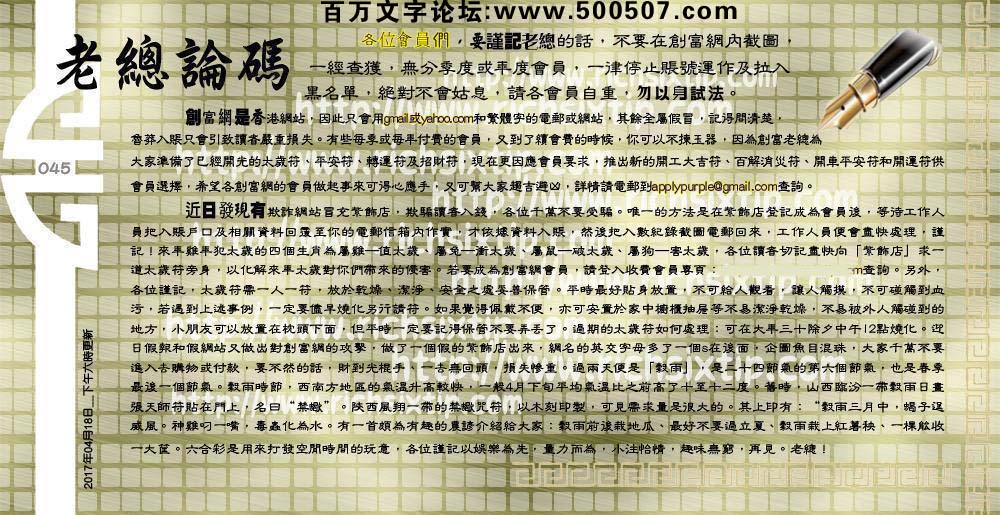 百万文字论坛:www.500507.com
老總論碼
各位會員們，要謹記老總的話，不要在創富網內截圖，
一經查獲，無分季度或年度會員，一律停止賬號運作及拉入
黑名單，絕對不會姑息，請各會員自重，勿以身試法。
創富網是香港網站，因此只會用gmail或yahoo.com和繁體字的電郵或網站，其餘全屬假冒，記得問清楚，
魯莽入賬只會引致讀者嚴重損失。有些每季或每年付費的會員，又到了續會費的時候，你可以不揀玉器，因為創富老總為
045
大家準備了已經開光的太歲符、平安符、轉運符及招財符，現在更因應會員要求，推出新的開工大吉符、百解消災符、開車平安符和開運符供
會員選擇，希望各創富網的會員做起事來可得心應手，又可幫大家趨吉避凶，詳情請電郵到applypurple@gmail.com查詢。
近日發現有欺詐網站冒充紫飾店，欺騙讀者入錢，各位千萬不要受騙。唯一的方法是在紫飾店登記成為會員後，等待工作人
員把入賬戶口及相關資料回覆至你的電郵信箱內作實，才依據資料入賬，然後把入數紀錄截圖電郵回來，工作人員便會盡快處理，謹
記！來年雞年犯太歲的四個生肖為屬雞—值太歲、屬兔—衝太歲、屬鼠—破太歲、屬狗—害太歲，各位讀者切記盡快向「紫飾店」求一
道太歲符旁身，以化解來年太歲對你們帶來的侵害。若要成為創富網會員，請登入收費會員專頁 m查詢。另外，
各位謹記，太歲符需一人一符，放於乾燥、潔淨、安全之處妥善保管。平時最好貼身放置，不可給人觀看，讓人觸摸，不可碰觸到血
污，若遇到上述事例，一定要儘早燒化另行請符。如果覺得佩戴不便，亦可安置於家中櫥櫃抽屜等不易潔淨乾燥，不易被外人觸碰到的
地方，小朋友可以放置在枕頭下面，但平時一定要記得保管不要弄丟了。過期的太歲符如何處理：可在大年三十除夕中午12點燒化。近
日假報和假網站又做出對創富網的攻擊，做了一個假的紫飾店出來，網名的英文字母多了一個s在後面，企圖魚目混珠，大家千萬不要
進入去購物或付款，要不然的話，財到光棍手，一去無回頭，損失慘重。過兩天便是「穀雨」，是二十四節氣的第六個節氣，也是春季
最後一個節氣。穀雨時節，西南方地區的氣溫升高較快，一般4月下旬平均氣溫比之前高了十至十二度。舊時，山西臨汾一帶穀雨日畫
張天師符貼在門上，名曰“禁蠍”。陝西鳳翔一帶的禁蠍咒符，以木刻印製，可見需求量是很大的。其上印有：“穀雨三月中，蠍子逞
威風。神雞叼一嘴，毒蟲化為水。有一首頗為有趣的農諺介紹給大家：穀雨前後栽地瓜、最好不要過立夏、穀雨栽上紅薯秧、一棵能收
一大筐。六合彩是用來打發空閒時間的玩意，各位謹記以娛樂為先，量力而為，小注怡情，趣味無窮，再見。老總！
2017年04月18日__下午六時更新
http://www.richsixtip.com
http://www.richsixtip.com